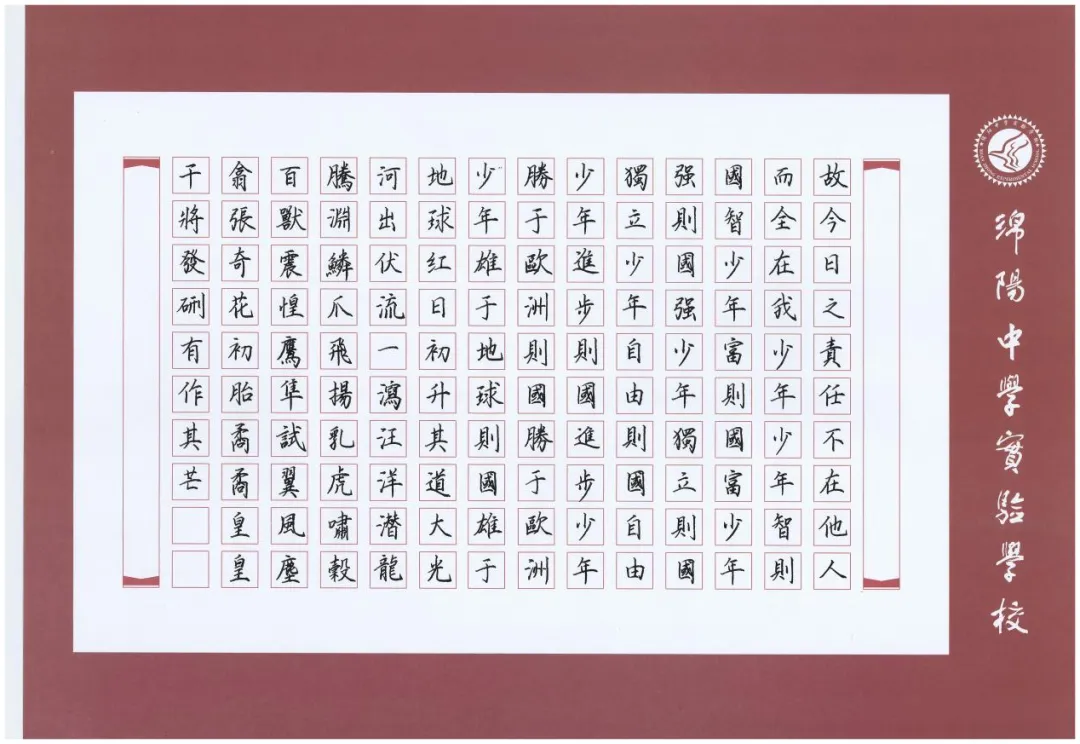 故今日之責任不在他人
而全在我少年少年智則
國智少年富則國富少年
强則國强少年獨立則國
獨立少年自由則國自由
少年進步則國進步少年
勝于歐洲則國勝于歐洲
少年雄于地球則國雄于
地球红日初升其道大光
河出伏流一瀉汪洋潜龍
騰淵鱗爪飛揚乳虎嘯穀
百獸震惶鷹隼試翼風塵
翕張奇花初胎矞矞皇皇
干將發硎有作其芒
綿陽中學實驗學校